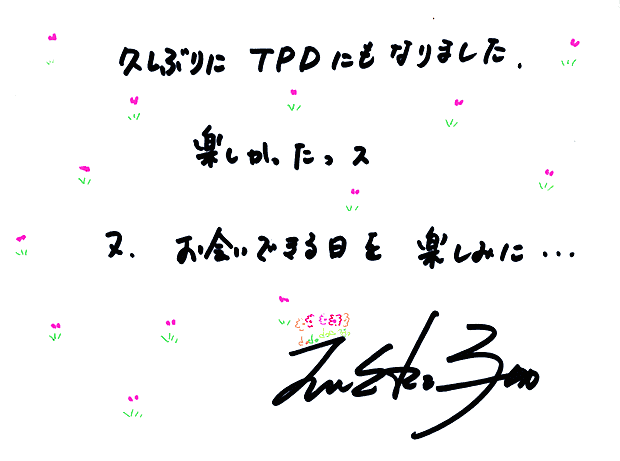 久しぶりに TPDにも なりました.
楽しかったっス
又. お会いできる日を 楽しみに...